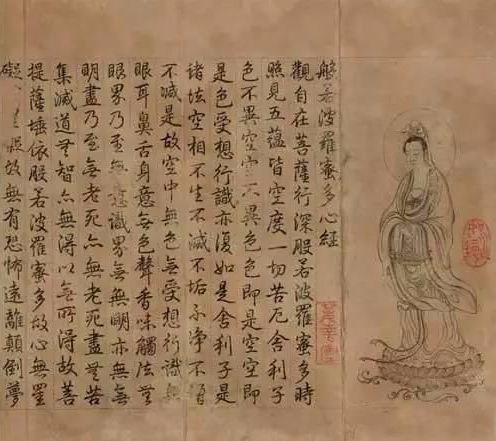 般若波羅蜜多心經
觀自在菩薩行深般若波羅蜜多時
照見五蘊皆空度一切苦厄舍利子
色不異空空不異色色即是空空即
是色受想行識亦復如是舍利子是
諸法空相不生不滅不垢不淨不增
不減是故空中無色無受想行識無
眼耳鼻舌身意無色聲香味觸法無
眼界乃至無意識界無無明亦無無
明盡乃至無老死亦無老死盡無苦
集滅道無智亦無得以無所得故菩
提薩埵依般若波羅蜜多故心無罣
礙故無有恐怖遠離顛倒夢